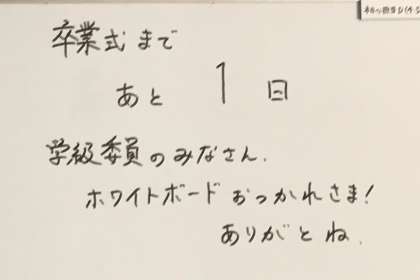 卒業式まで
あと 1 日
学級委員のみなさん.
ホワイトボード おつかれさま!
ありがとね.